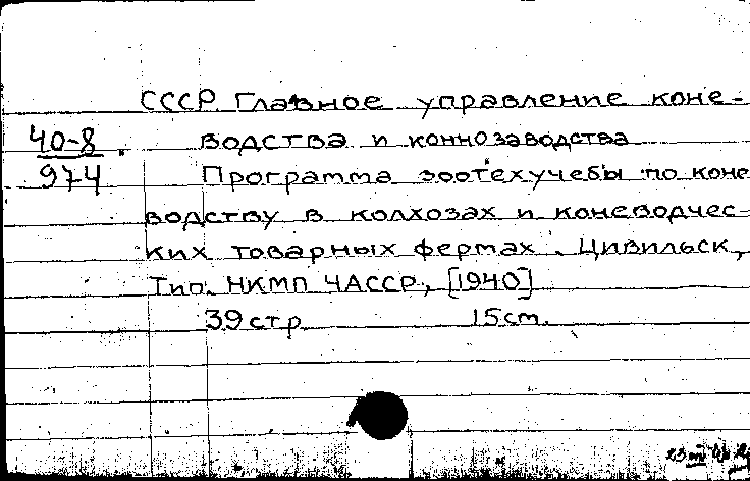 СССР. Главное управление коне-
40-8
974
водства и коннозаводства
Программа зоотехучебы по коне
водству в колхозах и коневодчес-
ких товарных фермах. Цивильск,
Тип. НКМП ЧАССР, [1940]
39 стр 15 см.